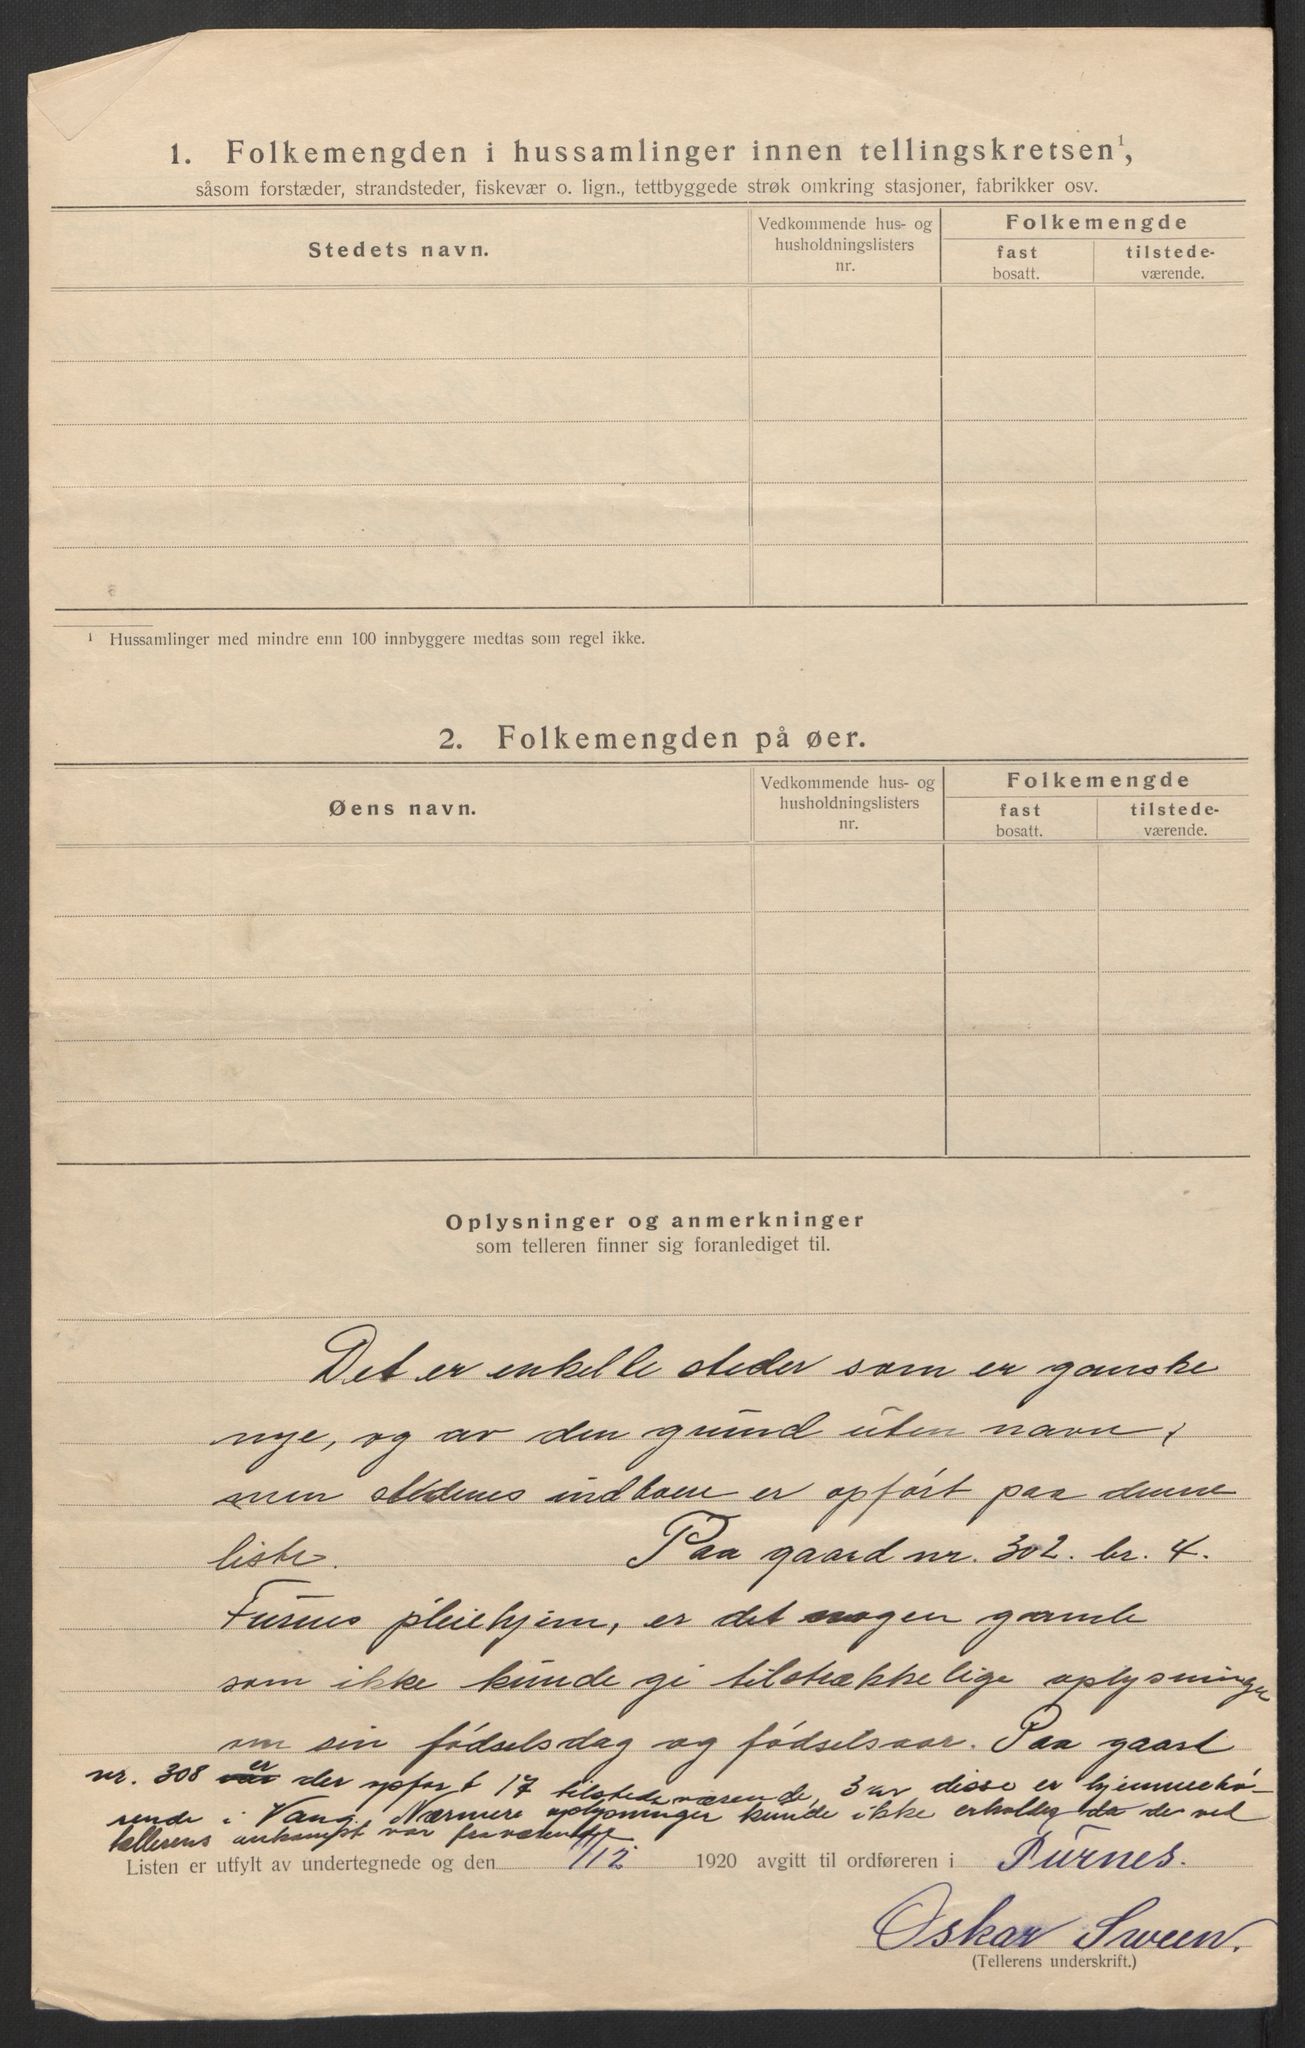 1. Folkemengden i hussamlinger innen tellingskretsen¹,
såsom forstæder, strandsteder, fiskevær o. lign., tettbyggede strøk omkring stasjoner, fabrikker osv.
Stedets navn.
Vedkommende hus- og
husholdningslisters
nr.
Folkemengde
fast
bosatt.
tilstede-
værende.
¹ Hussamlinger med mindre enn 100 innbyggere medtas som regel ikke.
2. Folkemengden på øer.
Øens navn.
Vedkommende hus- og
husholdningslisters
nr.
Folkemengde
fast
bosatt.
tilstede-
værende.
Oplysninger og anmerkninger
som telleren finner sig foranlediget til.
Det er enkelte steder som er ganske
nye, og av den grund uten navn,
men stedenes indboere er opført paa denne
liste. Paa gaard nr. 302. br. 4.
Furnes pleiehjem, er det nogen gamle
som ikke kunde gi tilstrækkelige oplysninger
om sin fødselsdag og fødselsaar. Paa gaard
nr. 308 er der opført 17 tilstedeværende, 3 av disse er hjemmehø-
rende i Vang. Nærmere oplysninger kunde ikke erholdes da de ved
tællerens ankomst var fraværende
Listen er utfylt av undertegnede og den /12 1920 avgitt til ordføreren i Furnes.
Oskar Sveen.
(Tellerens underskrift.)